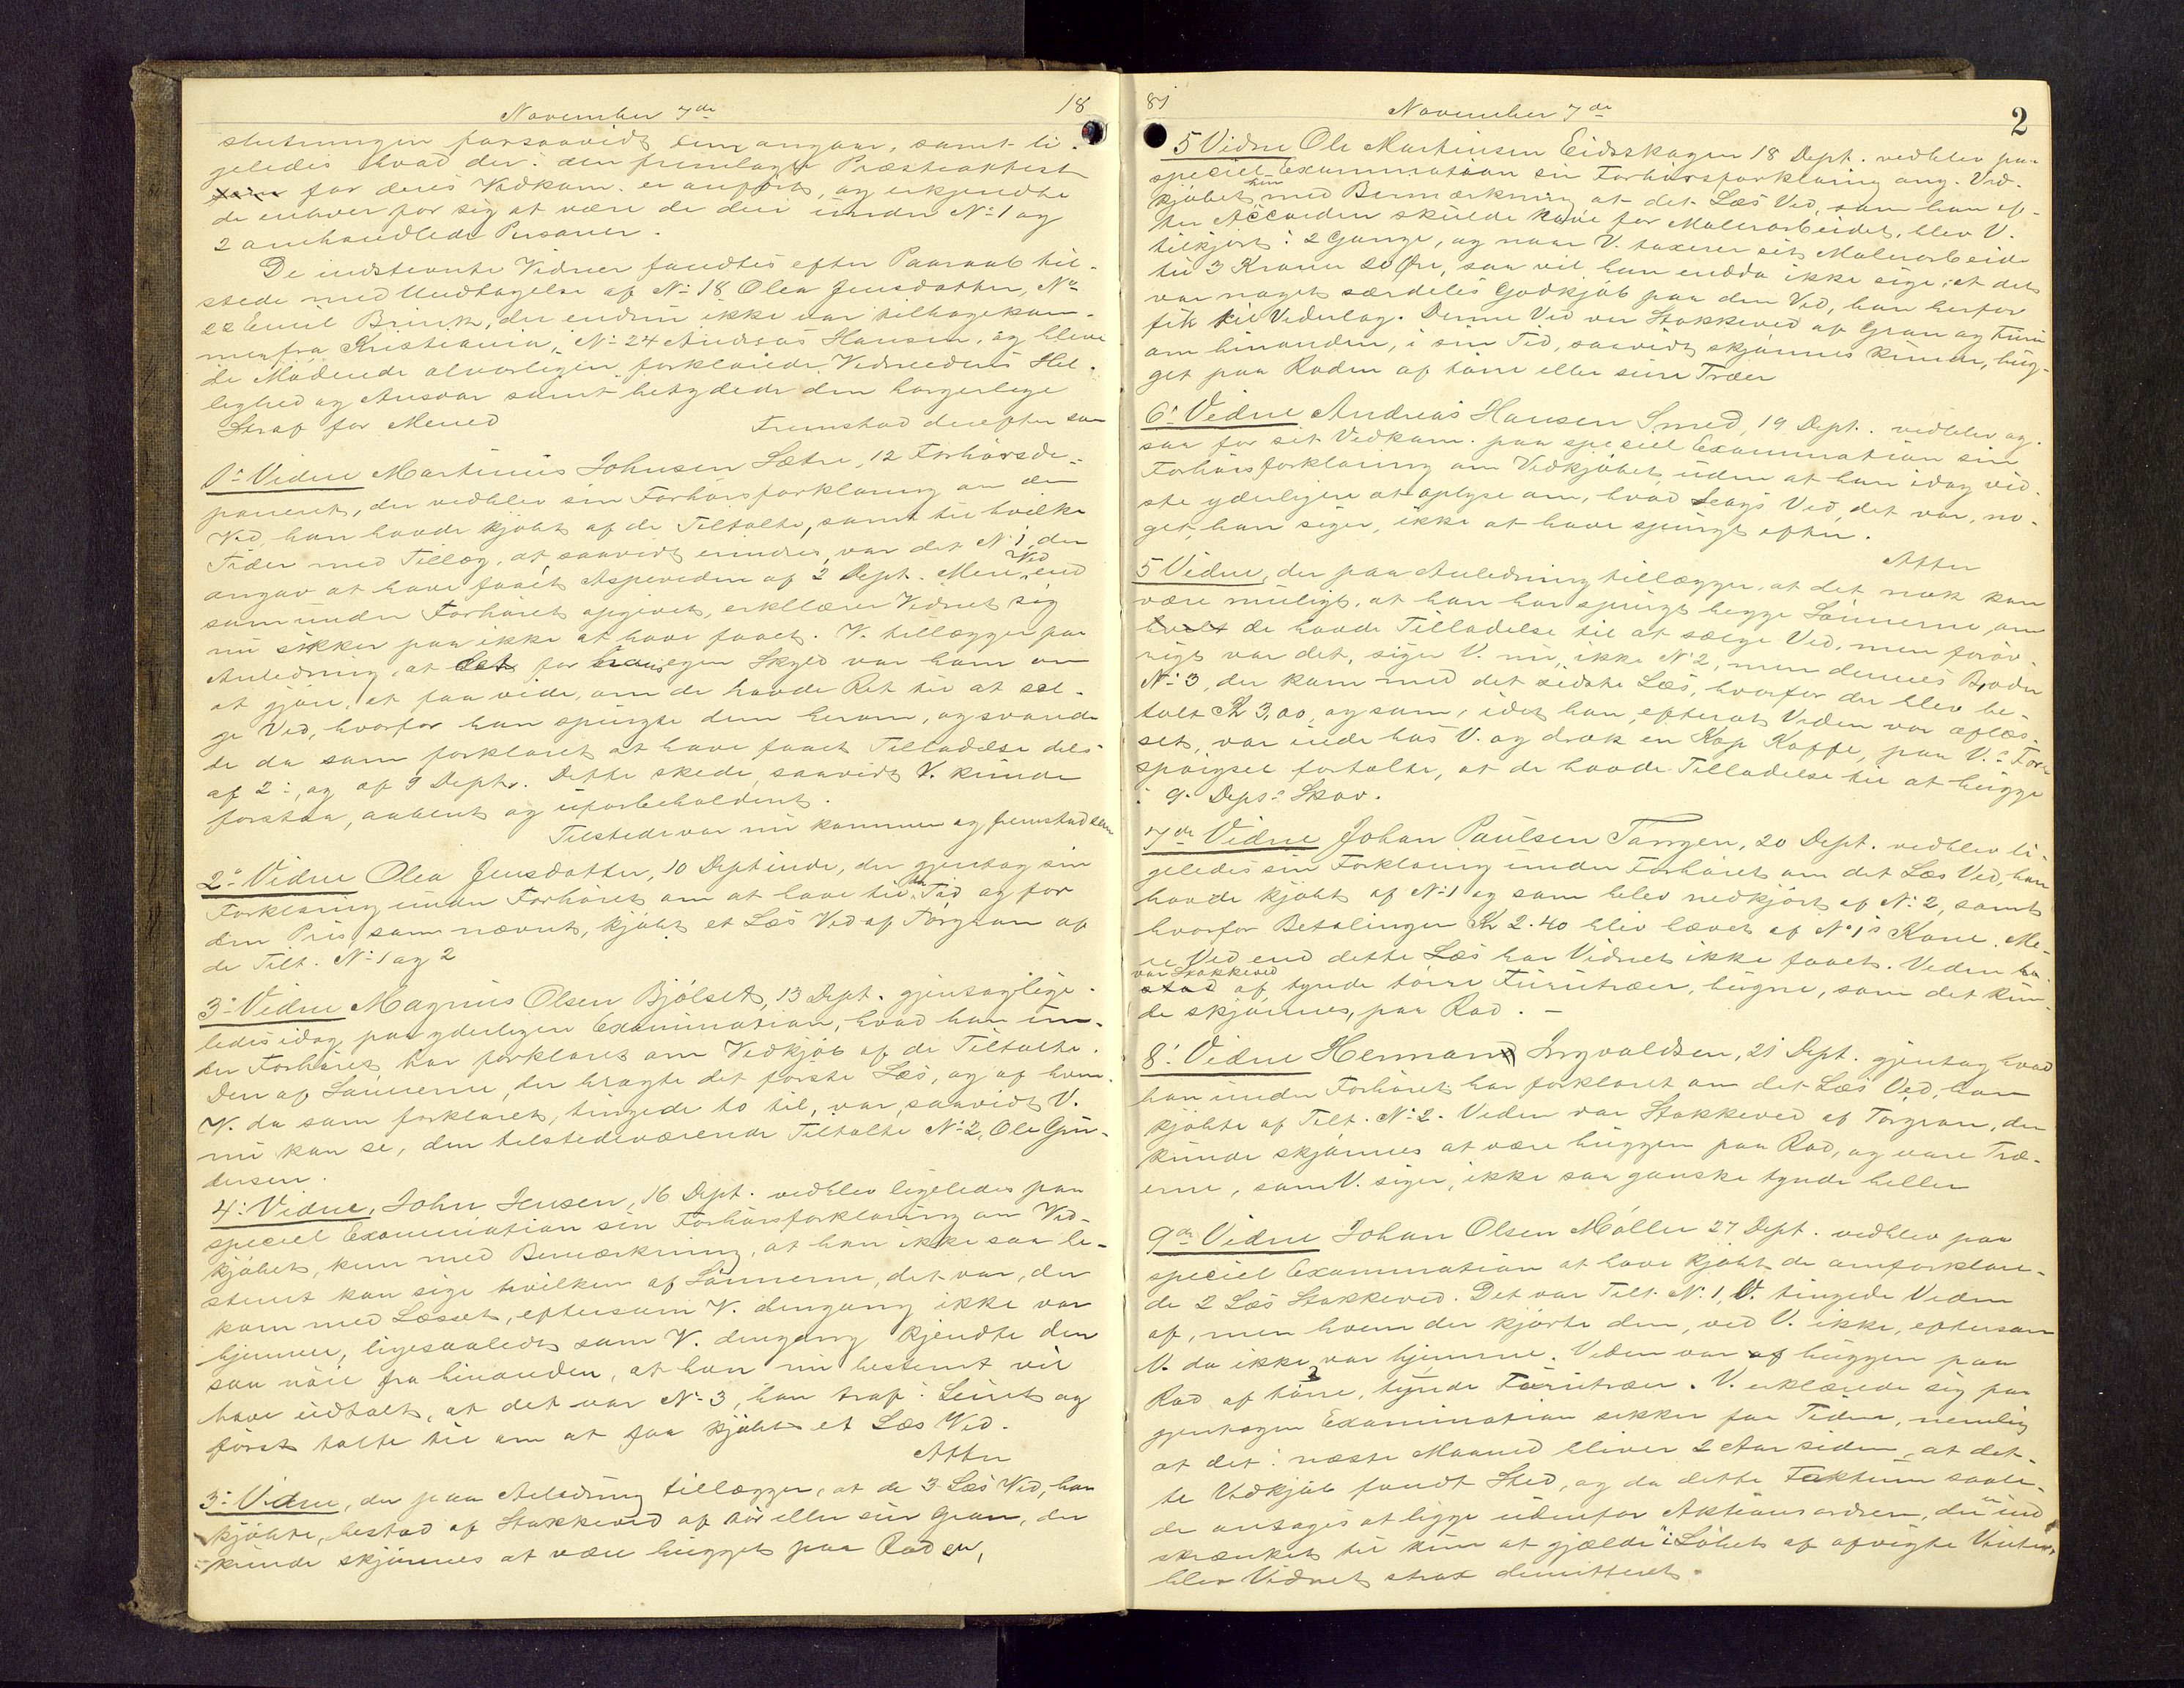 November 7de 18
slutningen forsaavidt dem angaar, samt li-
geledes hvad der i den fremlagte Præsteattest
for deres Vedkom. er anført, og erkjendte
de enhver for sig at være de deri under No 1 og
2 omhandlede Personer.
De indstevnte Vidner fandtes efter Paaraab til-
stede med Undtagelse af No 18 Olea Jensdatter, No
22 Emil Brink, der endnu ikke var tilbagekom-
men fra Kristiania, No 24 Andreas Hansen, og bleve
de Mødende alvorligen forklarede Vidneedens Hel-
lighed og Ansvar samt betydede den borgerlige
Straf for Mened Fremstod derefter som
1o Vidne Martinius Johnsen Sætre, 12 Forhørsde-
ponent, der vedblev sin Forhørsforklaring om den
Ved, han havde kjøbt af de Tiltalte, samt til hvilke
Tider med Tillæg, at saavidt erindres, var det No 1, der
angav at have faaet Aspeveden af 2 Dept. Mere Ved end
som under Forhøret opgivet, erkllærer Vidnet sig
nu sikker paa ikke at have faaet. V. tillægger paa
Anledning, at det for hans egen Skyld var ham om
at gjøre, at faa vide, om de havde Ret til at sæl-
ge Ved, hvorfor han spurgte dem herom, og svarede
de da som forklaret at have faaet Tilladelse dels
af 2: og af 9 Dept. Dette skede, saavidt V. kunde
forstaa, aabent og uforbeholdent.
Tilstede var nu kommen og fremstod som
2o Vidne Olea Jensdatter, 10 Deptinde, der gjentog sin
Forklaring under Forhøret om at have til den Tid og for
den Pris, som nævnt, kjøbt et Læs Ved af Torgran af
de Tilt. No 1 og 2
3o Vidne Magnus Olsen Bjølset, 13 Dept. gjentog lige-
ledes idag paa yderligere Examination, hvad han un-
der Forhøret har forklaret om Vedkjøb af de Tiltalte.
Den af Sønnerne, der bragte det første Læs, og af hvem
V. da som forklaret, tingede to til, var, saavidt V.
nu kan se, den tilstedeværende Tiltalte No 2, Ole Gun-
dersen.
4: Vidne, John Jensen, 16 Dept. vedblev ligeledes paa
speciel Examination sin Forhørsforklaring om Ved-
kjøbet, kun med Bemærkning, at han ikke saa be-
stemt kan sige hvilken af Sønnerne, det var, der
kom med Læsset, eftersom V. dengang ikke var
hjemme, ligesaalidt som V. dengang kjendte dem
saa nøie fra hinanden, at han nu bestemt vil
have udtalt, at det var No 3, han traf i Lundt og
først talte til om at faa kjøbt et Læs Ved.
Atter
3: Vidne, der paa Anledning tillægger, at de 3 Læs Ved, han
kjøbte, bestod af Stokkeved af tør eller sur Gran, der
kunde skjønnes at være hugget paa Roden,
81 November 7de 2
5 Vidne Ole Martinsen Eidsskogen 18 Dept. vedblev paa
speciel Examination sin Forhørsforklaring ang. Ved-
kjøbet, kun med Bemærkning at det Læs Ved, som han ef-
ter Accorden skulde have for Malerarbeidet, blev V.
tilkjørt i 2 Gange, og naar V. taxerer sit Malerarbeide
til 3 Kroner 20 Øre, saa vil han endda ikke sige, at det
var noget særdeles Godkjøb paa den Ved, han herfor
fik til Vederlag. Denne Ved var Stokkeved af Gran og Furu
om hinanden, i sin Tid, saavidt skjønnes kunde, hug-
get paa Roden af tørre eller sure Træer
6: Vidne Andreas Hansen Smed, 19 Dept. vedblev og-
saa for sit Vedkom. paa speciel Examination sin
Forhørsforklaring om Vedkjøbet, uden at han idag vid-
ste yderligere at oplyse om, hvad Slags Ved, det var, no-
get, han siger, ikke at have spurgt efter.
Atter
5 Vidne, der paa Anledning tillægger, at det nok kan
være muligt, at han har spurgt begge Sønnerne, om
de havde Tilladelse til at sælge Ved, men forøv-
rigt var det, siger V. nu, ikke No 2, men dennes Broder
No 3, der kom med det sidste Læs, hvorfor der blev be-
talt Kr 3,00, og som, idet han, efterat Veden var aflæs-
set, var inde hos V. og drak en Kop Kaffe, paa V.s Fore-
spørgsel fortalte, at de havde Tilladelse til at hugge
i 9. Depts Skov.
7de Vidne Johan Paulsen Torgen, 20 Dept. vedblev li-
geledes sin Forklaring under Forhøret om det Læs Ved, han
havde kjøbt af No 1 og som blev nedkjørt af No 2, samt
hvorfor Betalingen Kr 2.40 blev hævet af No 1s Kone. Me-
re Ved end dette Læs har Vidnet ikke faaet. Veden
var Stokkeved
af tynde tørre Furutræer, hugne, som det kun-
de skjønnes, paa Rod. –
8: Vidne Herman Ingvaldsen, 21 Dept. gjentog hvad
han under Forhøret har forklaret om det Læs Ved, han
kjøbte af Tilt. No 2. Veden var Stokkeved af Torgran, der
kunde skjønnes at være huggen paa Rod, og vare Træ-
erne, som V. siger, ikke saa ganske tynde heller
9de Vidne Johan Olsen Møller 27 Dept. vedblev paa
speciel Examination at have kjøbt de omforklare-
de 2 Læs Stokkeved. Det var Tilt. No. 1, V. tingede Veden
af, men hvem der kjørte den, ved V. ikke, eftersom
V. da ikke var hjemme. Veden var huggen paa
Rod af tørre, tynde Furutræer. V. erklærede sig paa
gjentagen Examination sikker paa Tiden, nemlig
at det i næste Maaned bliver 2 Aar siden, at det-
te Vedkjøb fandt Sted, og da dette Faktum saale-
de ansages at ligge udenfor Aktionsordren, der er ind-
skrænket til kun at gjælde "i Løbet af afvigte Vinter"
blev Vidnet strax dimitteret.